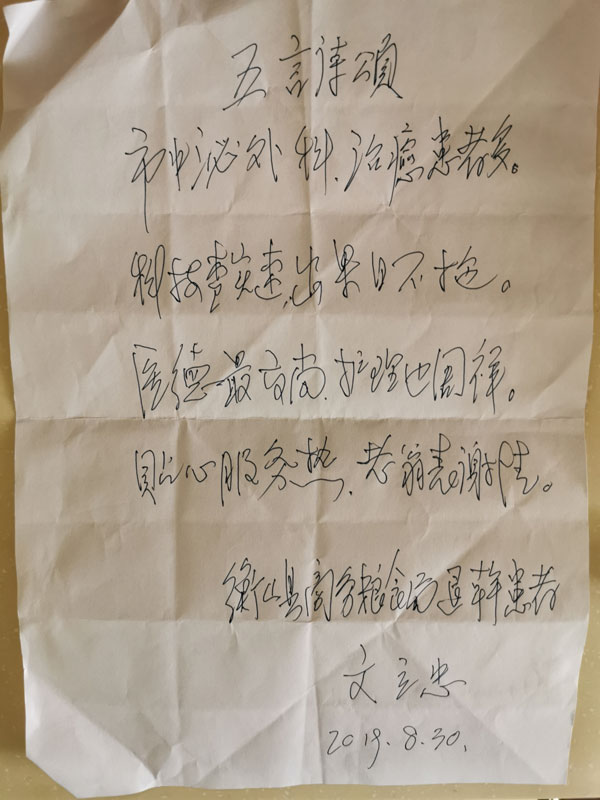 五言诗颂
市中泌外科、治癒患者多。
科技费实速,出果日不拖。
医德最高尚、护理也周祥。
贴心服务热、老翁表谢情。
衡山县商务粮食局退幹患者
文立忠
2019.8.30.